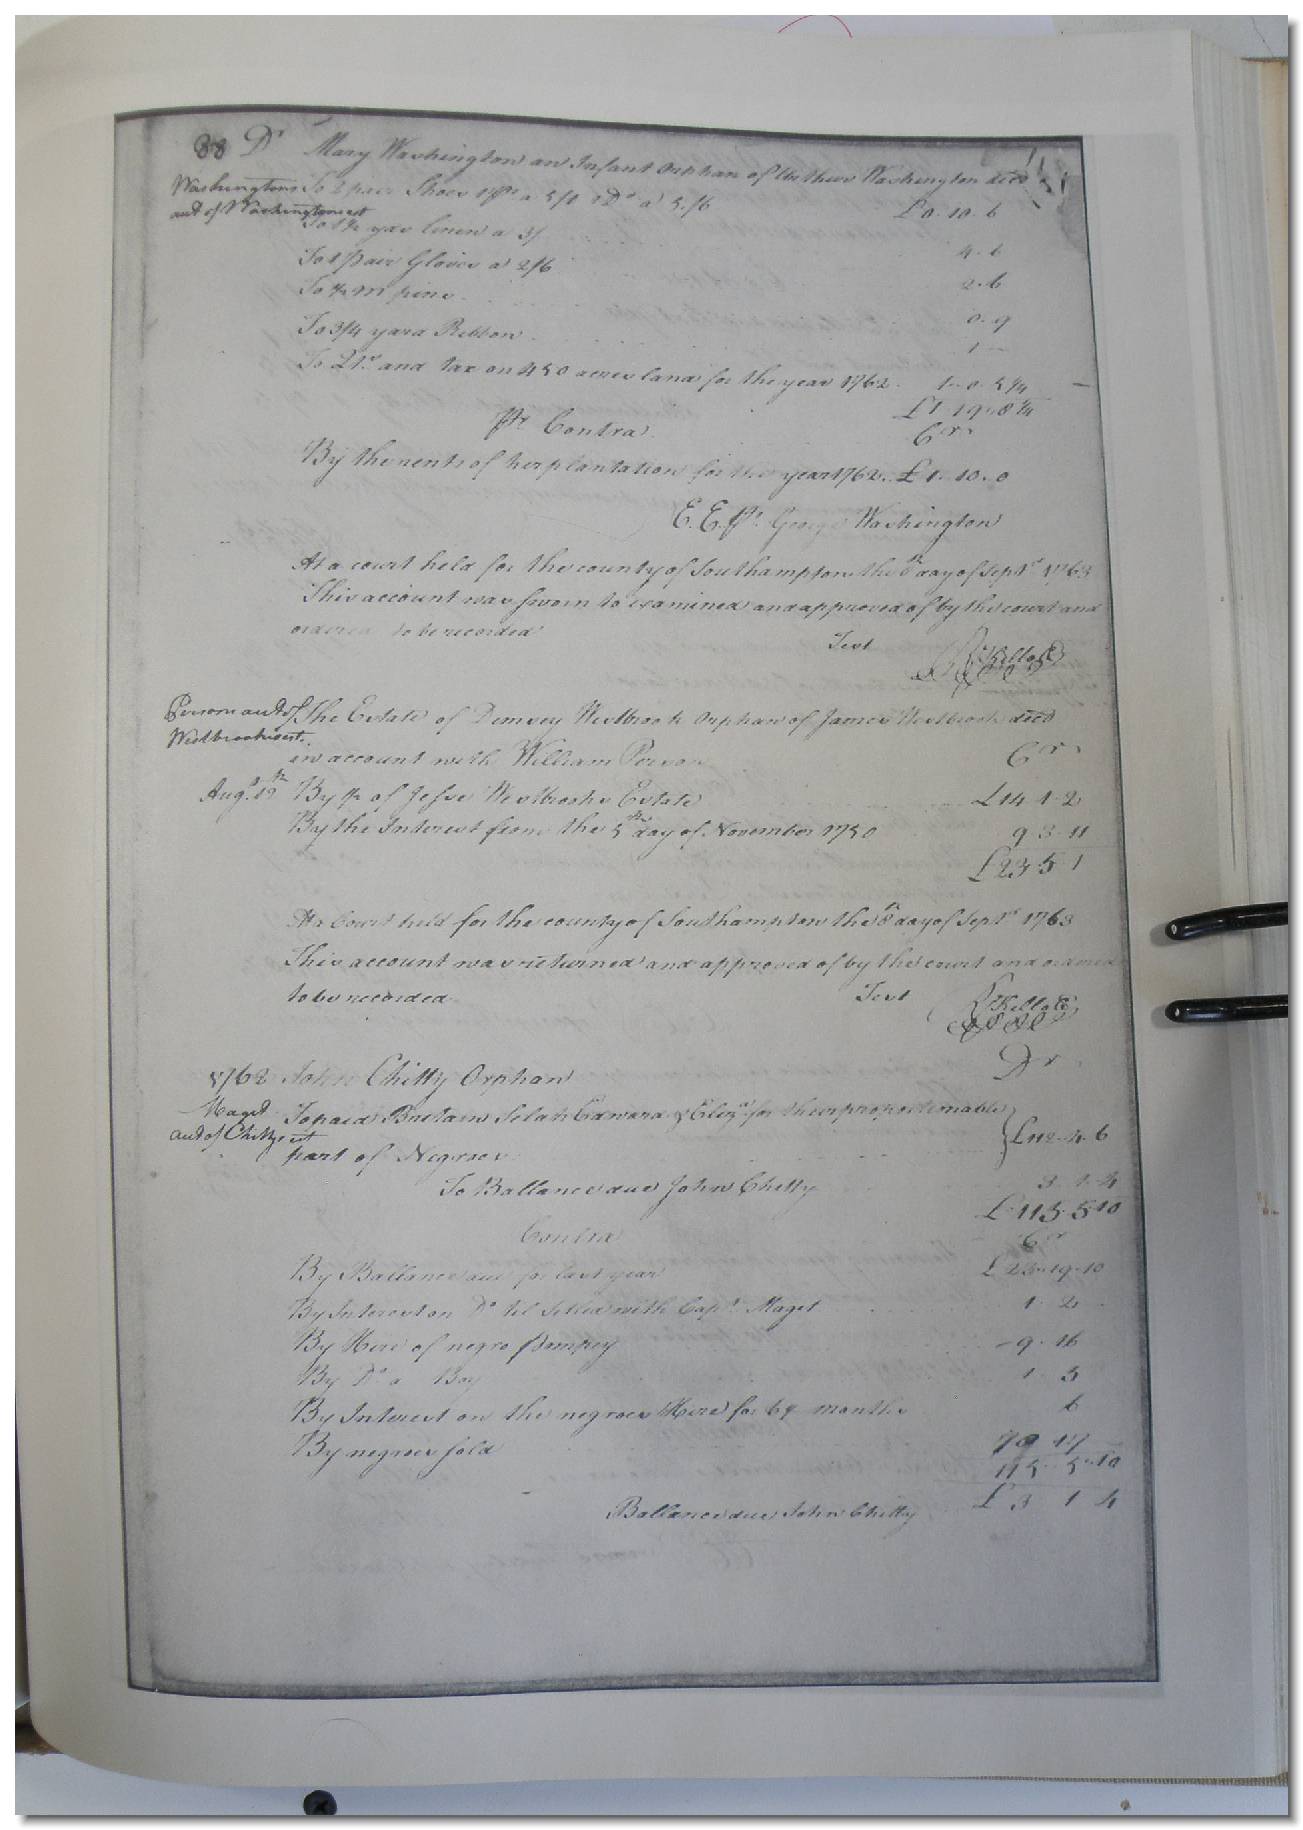 88 Dr Mary Washington an Infant Orphan of Arthur Washington decd
Washingtons To 2 pair Shoes 1 pr a 5/1 1 Do a 5/6 £0.10.6
aut of Washingtons est
To 1½ yds linen a 3/ 4.6
To 1 pair Gloves a 2/6 2.6
To ½ M pins 0.9
To 3/4 yard Ribbon 1
To and tax on 450 acres land for the year 1762. 1.0.5¼
£1.19.8¼
Pr Contra Crr
By the rents of her plantation for the year 1762. £1.10.0
E. E. Pr. George Washington
At a court held for the county of Southampton the 8th day of Septr 1763
This account was sworn to examined and approved of by the court and
ordered to be recorded Test
Person aut of The Estate of Demsey Westbrook Orphan of James Westbrook decd
Westbrooks est.
in account with William Person Cr
Augt. 12th By pr of Jesse Westbrooks Estate £14.1.2
By the Interest from the 5th day of November 1750 9.3.11
£23.5.1
At a Court held for the county of Southampton the 8th day of Septr 1763
This account was returned and approved of by the court and ordered
to be recorded Test
1762 John Chitty Orphan Dr
Maget To paid Britain Selah Edward & Eliza for their proportionable
aut of Chittys est £112.4.6
part of Negroes
To Ballance due John Chitty 3.1.4
£115.5.10
Contra Cr
By Ballance due for last year £23.19.10
By Interest on Do til settled with Capt. Maget 1.4
By Hire of negro Pompey 9.16
By Do a Boy 1.3
By Interest on the negroes Hire for months 6
By negroes sold 79.17
115.5.10
Ballance due John Chitty £3 1 4